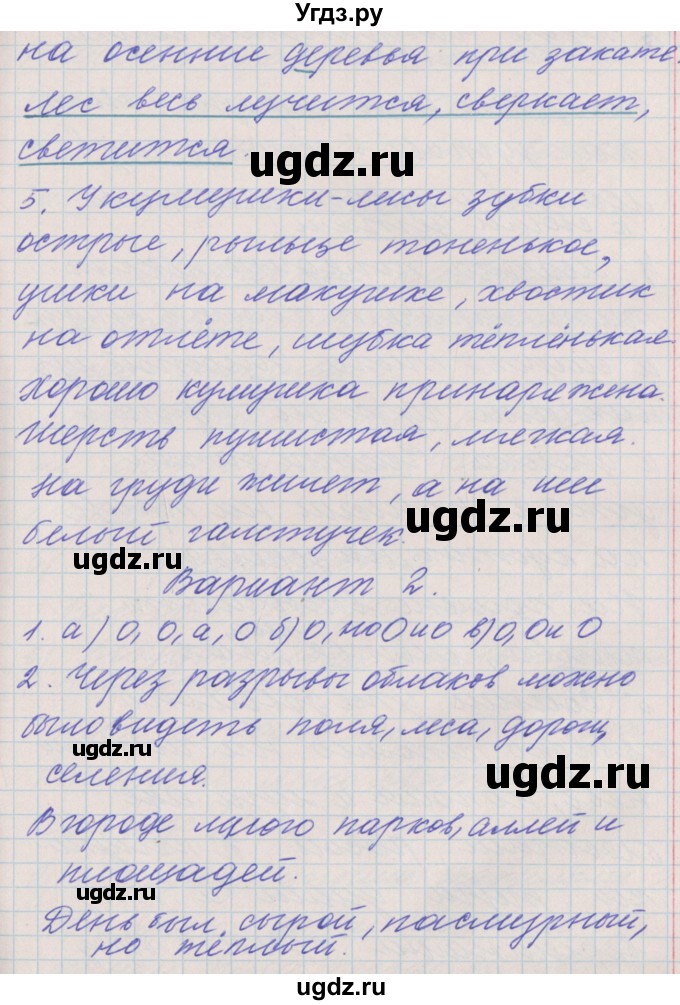 Угдз.ру
на осенние деревья при закате.
лес весь лучится, сверкает,
светится
ugdz.ru
5. У кумушки-лисы зубки
острые, рыльце тоненькое,
ushки на макушке, хвостик
на отлёте, шубка тёпленькая.
Хорошо кумушка принаряжена.
Шерсть пушистая, мягкая.
На груди жилет, а на шее
ugdz.ru
белый галстучек.
ugdz.ru
Вариант 2.
1. а) О, О, а, О б) О, но О и О в) О, О и О
2. Через разрывы облаков можно
было видеть поля, леса, дороги,
ugdz.ru
селения.
ugdz.ru
В городе много парков, аллей и
площадей.
ugdz.ru
День был сырой, пасмурный,
но тёплый.
ugdz.ru